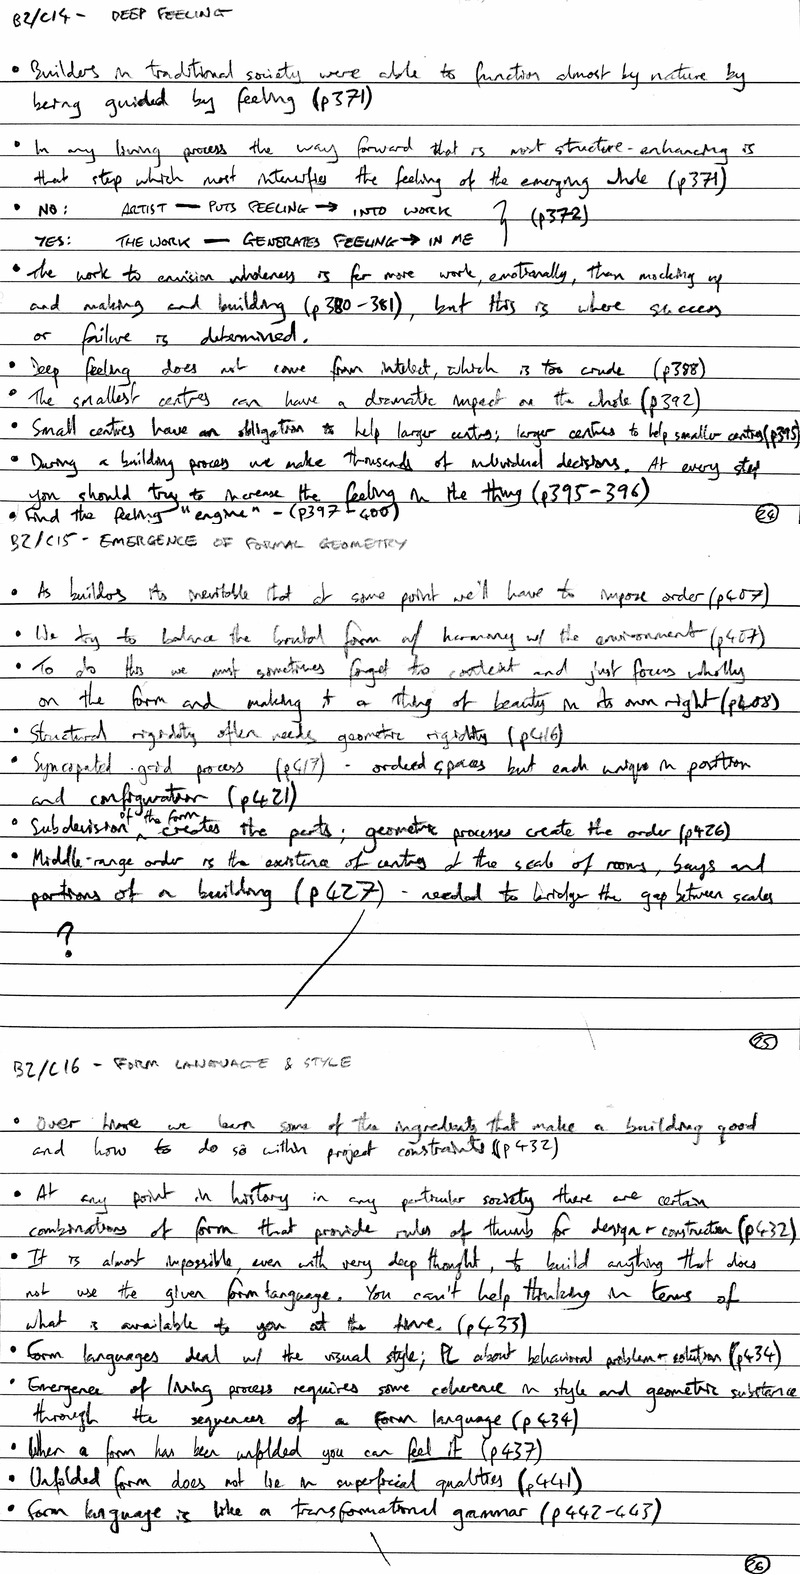 B2/C14 - DEEP FEELING
• Builders in traditional society were able to function almost by nature by
being guided by feeling (p371)
• In any living process the way forward that is most structure-enhancing is
that step which most intensifies the feeling of the emerging whole (p371)
• NO: ARTIST — PUTS FEELING → INTO WORK } (p372)
YES: THE WORK — GENERATES FEELING → IN ME
• The work to envision wholeness is far more work, emotionally, than mocking up
and making and building (p380-381), but this is where success
or failure is determined.
• Deep feeling does not come from intelect, which is too crude (p388)
• The smallest centres can have a dramatic impact on the whole (p392)
• Small centres have an obligation to help larger centres; larger centres to help smaller centres (p395)
• During a building process we make thousands of individual decisions. At every step
you should try to increase the feeling in the thing (p395-396)
• Find the feeling "engine" - (p397-400)
24
B2/C15 - EMERGENCE OF FORMAL GEOMETRY
• As builders its inevitable that at some point we'll have to impose order (p407)
• We try to balance the brutal form w/ harmony w/ the environment (p407)
• To do this we must sometimes forget the context and just focus wholly
on the form and making it a thing of beauty in its own right (p408)
• Structural rigidity often needs geometric rigidity (p416)
• Syncopated grid process (p417) - ordered spaces but each unique in position
and configuration (p421)
• Subdivision of the form creates the parts; geometric processes create the order (p426)
• Middle-range order is the existence of centres at the scale of rooms, bays and
portions of a building (p427) - needed to bridge the gap between scales
?
25
B2/C16 - FORM LANGUAGE & STYLE
• Over time we learn some of the ingredients that make a building good
and how to do so within project constraints (p432)
• At any point in history in any particular society there are certain
combinations of form that provide rules of thumb for design + construction (p432)
• It is almost impossible, even with very deep thought, to build anything that does
not use the given form language. You can't help thinking in terms of
what is available to you at the time. (p433)
• Form languages deal w/ the visual style; PL about behavioral problem + solution (p434)
• Emergence of living process requires some coherence in style and geometric substance
through the sequences of a form language (p434)
• When a form has been unfolded you can feel it (p437)
• Unfolded form does not lie in superficial qualities (p441)
• Form language is like a transformational grammar (p442-443)
26